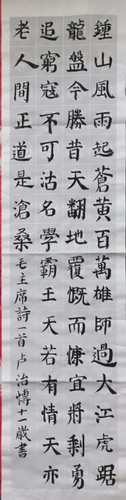 鍾山風雨起蒼黃百萬雄師過大江虎踞
龍盤今勝昔天翻地覆慨而慷宜將剩勇
追窮寇不可沽名學霸王天若有情天亦
老人間正道是滄桑毛主席詩一首卢治博十一歲書